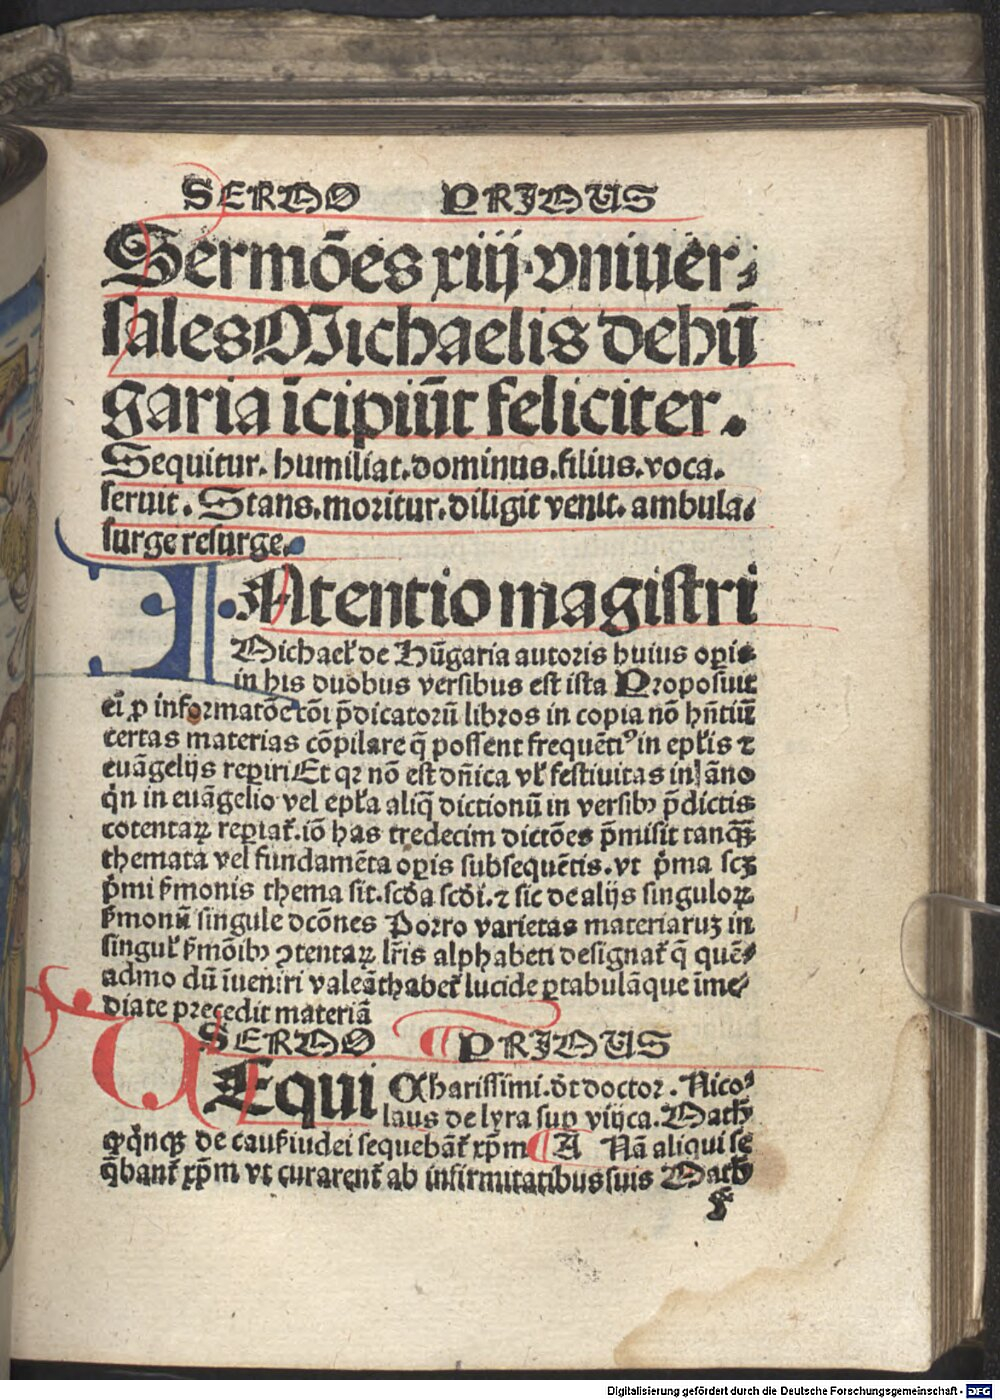 SERMO PRIMUS
Sermões xiij vniuer-
sales Michaelis de hū
garia īcipiūt feliciter.
Sequitur. humiliat. dominus. filius. voca.
seruit. Stans. moritur. diligit venit. ambula.
surge resurge.
INtentio magistri
Michael' de Hūgaria autoris huius opis
in his duobus versibus est ista Proposuit
ei ꝓ informatōe tōi p̄dicatorū libros in copia nō hn̄tiū
certas materias cōpilare q̄ possent frequēti⁹ in ep̄lis ⁊
euāgelijs reperiri Et qꝛ nō est dn̄ica vl' festiuitas in āno
qn̄ in euāgelio vel ep̄la aliq̄ dictionū in versibꝫ p̄dictis
cōtentaꝝ repiat'. iō has tredecim dictōes p̄misit tanqꝫ
themata vel fundamēta opis subsequētis. vt p̄ma scꝫ
p̄mi s̄monis thema sit. scd̄a scd̄i. ⁊ sic de alijs singuloꝝ
s̄monū singule dcōnes Porro varietas materiaruꝫ in
singul' s̄mōibꝫ ꝯtentaꝝ lr̄is alphabeti designat' q̄ quē-
admo dū īueniri valeāt habet' lucide ꝑ tabulā que īme-
diate precedit materiā
SERMO PRIMUS
SEqui Charissimi. vt doctor. Nico-
laus de lyra sup viij ca. Math
ꝙ qn̄qꝫ de caus̄ iudei sequebāt' xp̄m A Nā aliqui se
q̄bant' xp̄m vt curarent' ab infirmitatibus suis Math
f
Digitalisierung gefördert durch die Deutsche Forschungsgemeinschaft - DFG